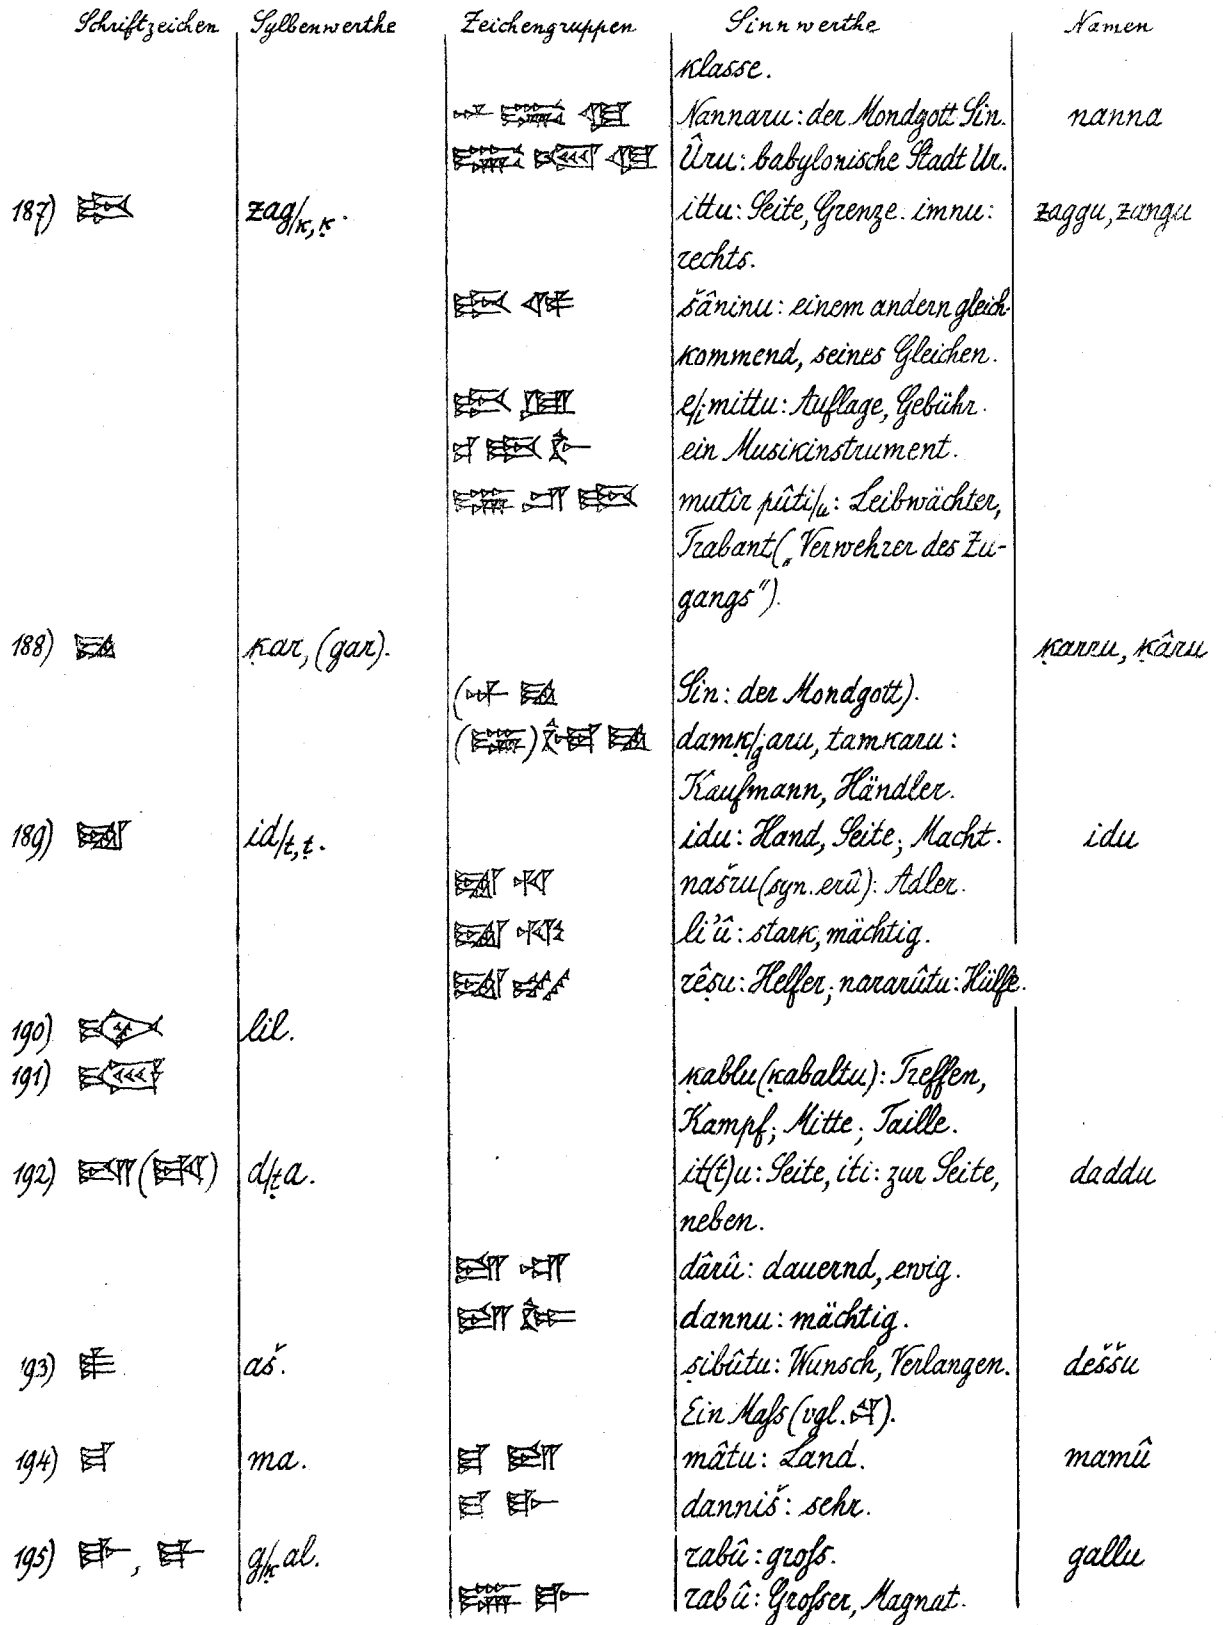 Schriftzeichen Sylbenwerthe Zeichengruppen Sinnwerthe Namen
klasse.
Nannaru: der Mondgott Sin. nanna
Ûru: babylonische Stadt Ur.
187) zag/k, ḳ. ittu: Seite, Grenze. imnu: zaggu, zangu
rechts.
šâninu: einem andern gleich-
kommend, seines Gleichen.
e/imittu: Auflage, Gebühr.
ein Musikinstrument.
mutîr pûti/u: Leibwächter,
Trabant („Verwehrer des Zu-
gangs“).
188) ḳar, (gar). ḳarru, ḳâru
( Sin: der Mondgott).
( ) damḳ/garu, tamkaru:
Kaufmann, Händler.
189) id/t, ṭ. idu: Hand, Seite; Macht. idu
našru (syn. erû): Adler.
li'û: stark, mächtig.
rêṣu: Helfer; nararûtu: Hülfe.
190) lil.
191) ḳablu (ḳabaltu): Treffen,
Kampf; Mitte; Taille.
192) ( ) d/ṭa. it(t)u: Seite, iti: zur Seite, daddu
neben.
dârû: dauernd, ewig.
dannu: mächtig.
193) aš. ṣibûtu: Wunsch, Verlangen. deššu
Ein Maſs (vgl. ).
194) ma. mâtu: Land. mamû
danniš: sehr.
195) , g/ḳal. rabû: groſs. gallu
rabû: Groſser, Magnat.